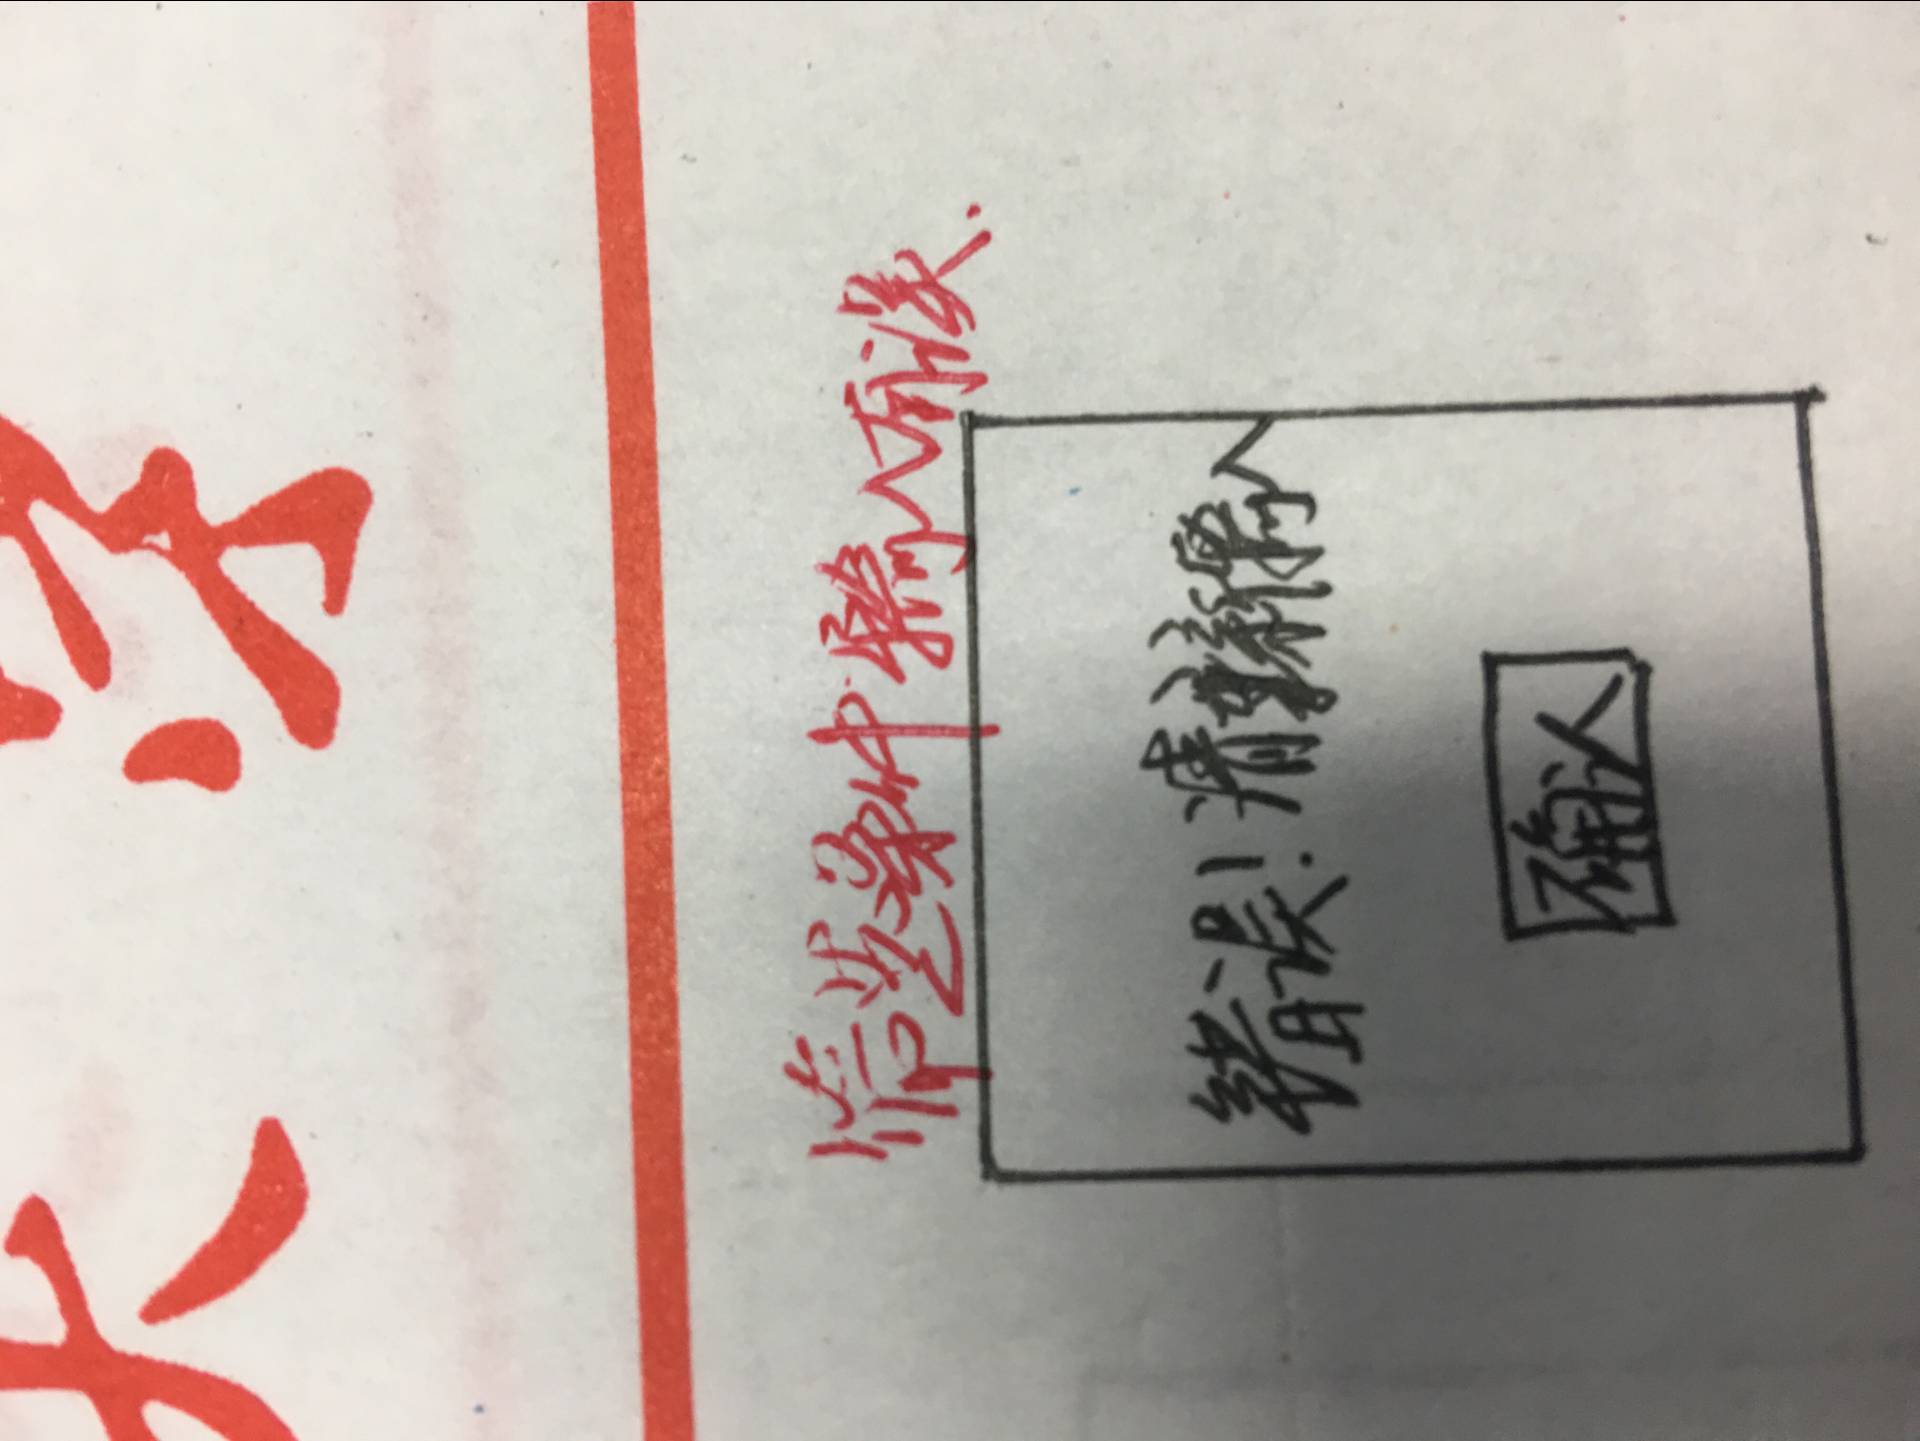 大学
筛选条件输入有误.
错误!请重新输入
确认